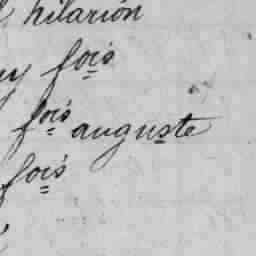 hilarion
fois
fois auguste
fois